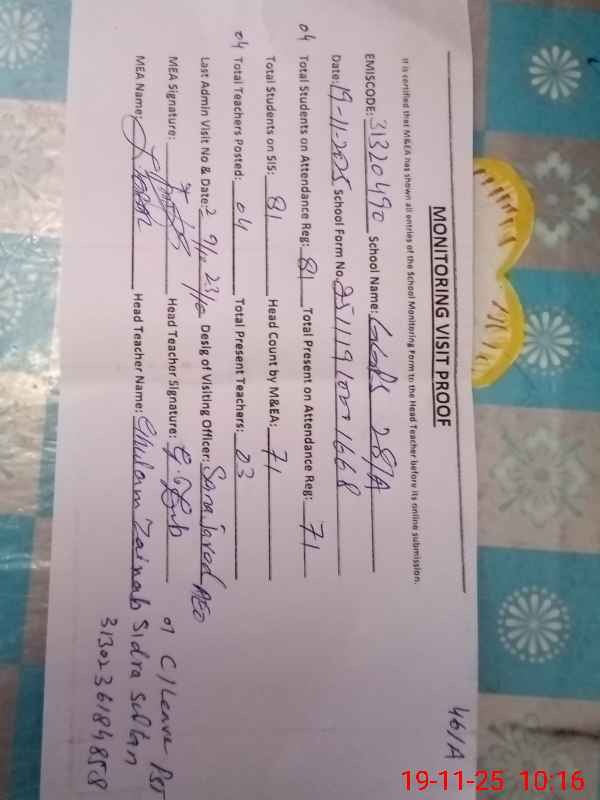 461A
MONITORING VISIT PROOF
It is certified that M&EA has shown all entries of the School Monitoring Form to the Head Teacher before its online submission.
EMISCODE: 31320490 School Name: GGPS 287A
Date: 19-11-2025 School Form No. 251119
04 Total Students on Attendance Reg: 81 Total Present on Attendance Reg: 71
Total Students on SIS: 81 Head Count by M&EA: 71
04 Total Teachers Posted: 04 Total Present Teachers: 03
Last Admin Visit No & Date: 2 Desig of Visiting Officer: Sara javed AEO
MEA Signature: Head Teacher Signature:
MEA Name: Head Teacher Name: Ghulam Zainab
01 C/Leave
Sidra Sultan
3130236184858
19-11-25 10:16